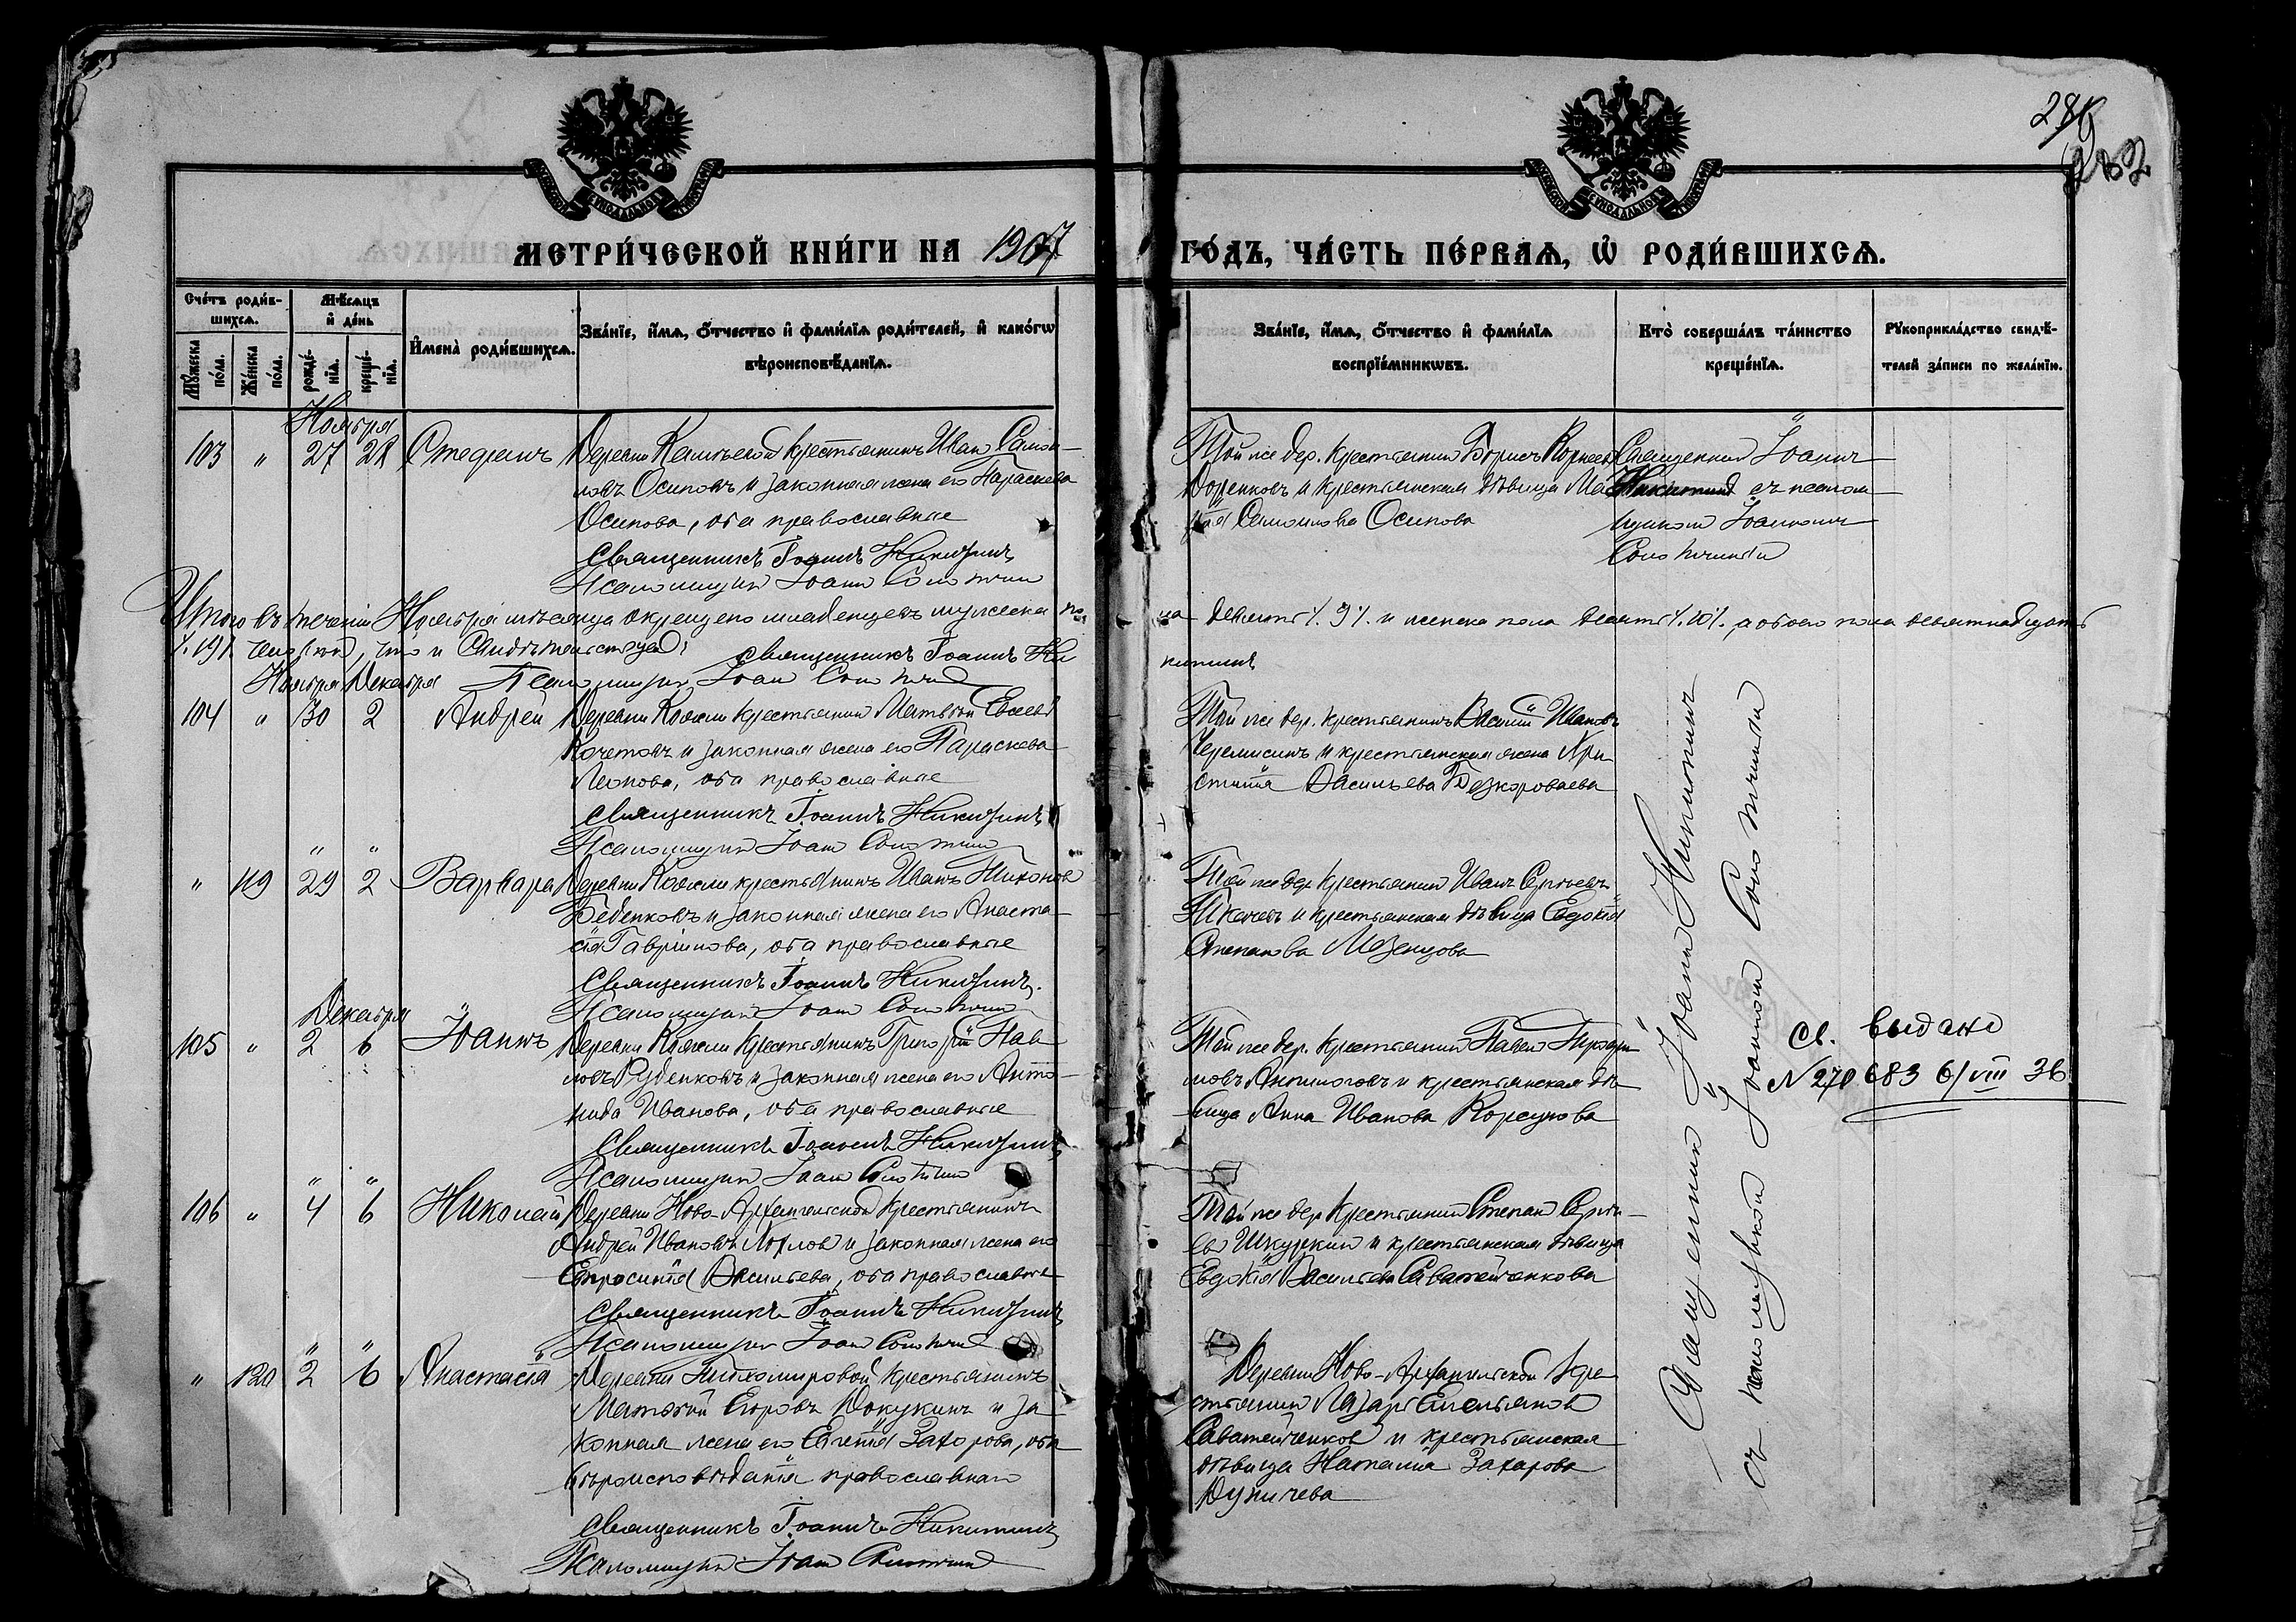 286
232
МЕТРИ́ЧЕСКОЙ КНИ́ГИ НА 1907 ГО́ДЪ, ЧА́СТЬ ПЕ́РВАѦ, Ѽ РОДИ́ВШИХСѦ.
Сче́тъ роди́в-
шихсѧ.
Мꙋ́жеска по́ла.
Же́нска по́ла.
Мѣ́сѧцъ
и҆ де́нь
рожде́-
нїѧ.
креще́-
нїѧ.
И҆мена̀ роди́вшихсѧ.
Зва́нїе, и҆́мѧ, ѻ҆́тчество и҆ фами́лїѧ роди́телей, и҆ како́гѡ
вѣроисповѣ́данїѧ.
Зва́нїе, и҆́мѧ, ѻ҆́тчество и҆ фами́лїѧ
воспрїе́мникѡвъ.
Кто̀ соверша́лъ та́инство
креще́нїѧ.
Рꙋкоприкла́дство свидѣ́-
телей за́писи по жела́нїю.
Ноября
103 " 27 28 Стефанъ Деревни крестьянинъ Иван Самои-
ловъ Осиповъ и законная жена его Параскева
Осипова, оба православные
Священникъ Іоаннъ Никитинъ
Псаломщикъ Іоаннъ
Той же дер. крестьянинъ Борисъ Корнеевъ
и крестьянская дѣвица
Самоилова Осипова
Священникъ Іоаннъ
Никитинъ съ псалом-
щикомъ Іоанномъ
Итого въ теченіи Ноября мѣсяца окрещено младенцевъ мужеска по-
ла девять /. 9 /. и женска пола десять /. 10 /., а обоего пола девятнадцать
/. 19 /. человѣкъ, что и Свидѣтельствуемъ: Священникъ Іоаннъ Ни
китинъ
Псаломщикъ Іоаннъ
Ноября Декабря
104 " 30 2 Андрей Деревни крестьянинъ Матвѣй Евсеевъ
Кочетовъ и законная жена его Параскева
Леонова, оба православные
Священникъ Іоаннъ Никитинъ
Псаломщикъ Іоаннъ
Той же дер. крестьянинъ Василій Ивановъ
Черемисинъ и крестьянская жена Хри-
стинія Васильева Безкороваева
" "
" 119 29 2 Варвара Деревни крестьянинъ Иванъ Никоновъ
Беденковъ и законная жена его Анаста-
сія Гавріилова, оба православные
Священникъ Іоаннъ Никитинъ.
Псаломщикъ Іоаннъ
Той же дер. крестьянинъ Иванъ Сергѣевъ
Ткачевъ и крестьянская дѣвица Евдокія
Степанова Мезенцова
Декабря
105 " 2 6 Іоаннъ Деревни крестьянинъ Григорій Пав-
ловъ Руденковъ и законная жена его Анто-
нида Иванова, оба православные
Священникъ Іоаннъ Никитинъ
Псаломщикъ Іоаннъ
Той же дер. крестьянинъ Павелъ
и крестьянская дѣ-
вица Анна Иванова Корсукова
Св. выдано
№ 270683 6/VIII 36
" "
106 " 4 6 Николай Деревни Ново-Архангельской крестьянинъ
Андрей Ивановъ и законная жена его
Евфросинія Васильева, оба православные
Священникъ Іоаннъ Никитинъ
Псаломщикъ Іоаннъ
Той же дер. крестьянинъ Степанъ Сергѣ-
евъ Шкуркинъ и крестьянская дѣвица
Евдокія Васильева Саватейченкова
" "
" 120 2 6 Анастасія Деревни Тихомировой крестьянинъ
Матвѣй Егоровъ Докукинъ и за-
конная жена его Евгенія Захорова, оба
вѣроисповѣданія православнаго
Священникъ Іоаннъ Никитинъ
Псаломщикъ Іоаннъ
Деревни Ново-Архангельской кре-
стьянинъ Лазарь Емельяновъ
Саватейченковъ и крестьянская
дѣвица Наталія Захарова
Священникъ Іоаннъ Никитинъ
съ псаломщикомъ Іоанномъ